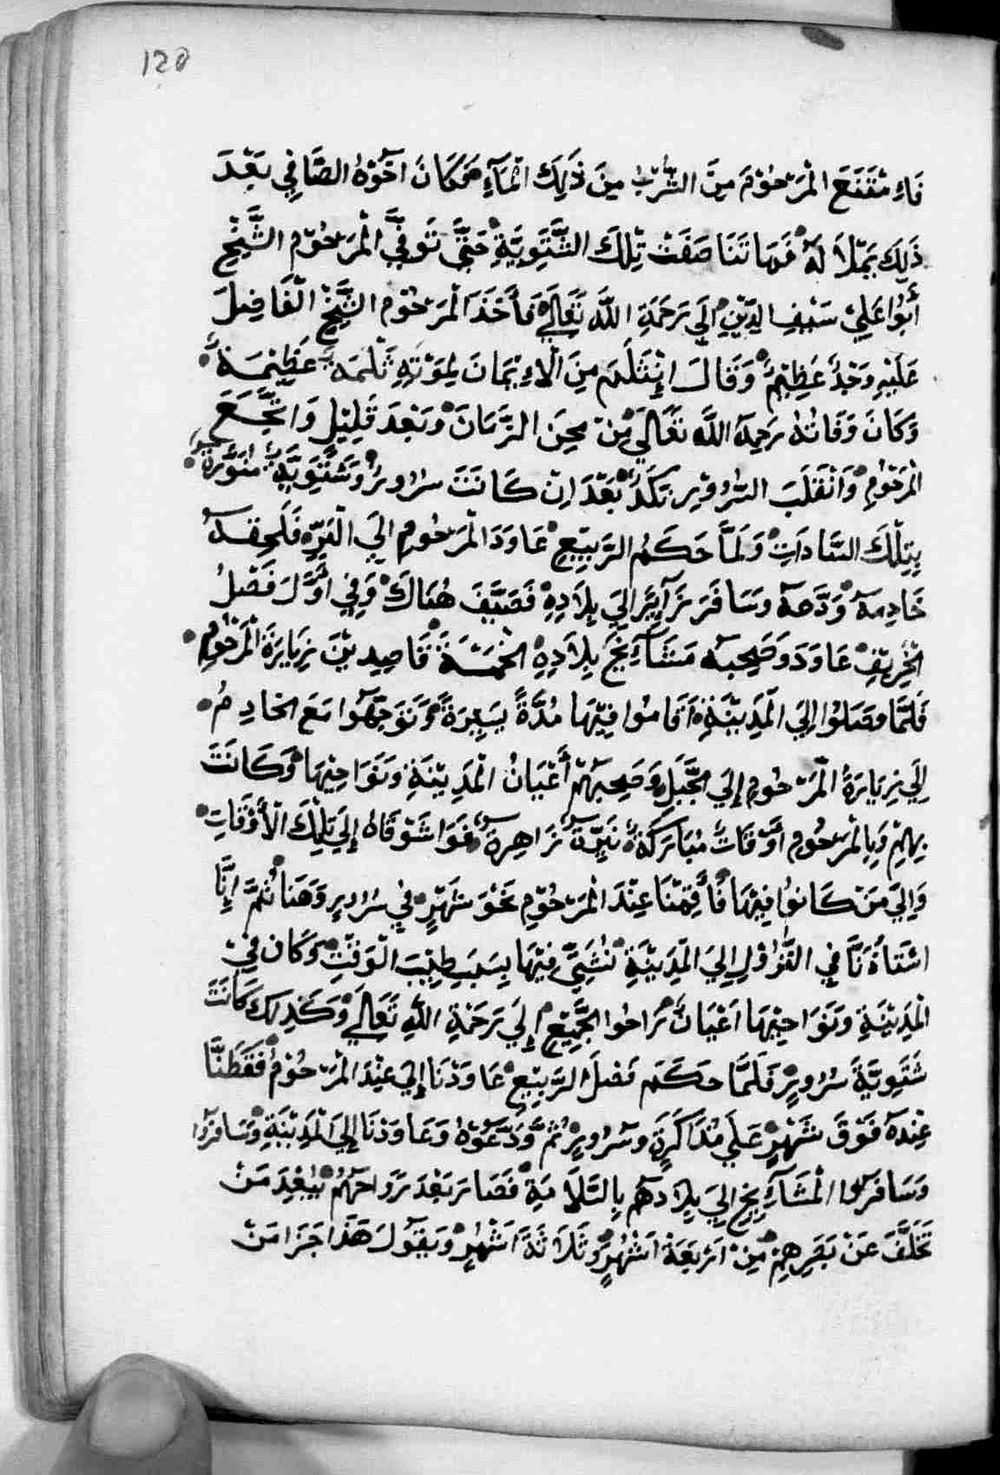 120
فاء متنع المرحوم من الشرب من ذلك المآء فكان اخوه الصافي بعد
ذلك يملا له فما تناصفت تلك الشتوية حتى توفي المرحوم الشيخ
أبوا علي سيف الدين الى رحمة الله تعالى فأخذ المرحوم الشيخ الفاضل
عليه وجد عظيم وقال انثلم من الاءيمان لموته ثلمه عظيمة
وكان وفاته رحمه الله تعالى من محن الزمان وبعد قليل واتجع
المرحوم وانقلب السرور بكد بعد ان كانت سرور وشتوية منورة
بتلك السادات ولما حكم الربيع عاود المرحوم الى القبه فلحقه
خادمه ودعه وسافر زآير الى بلاده فصيف هناك وفي اول فصل
الخريف عاود وصحبه مشآيخ بلاده الخمسة قاصدين زيارة المرحوم
فلما وصلوا الى المدينة اقاموا فيها مدة يسيرة وتوجهوا مع الخادم
الى زيارة المرحوم إلى الجبل وصحبهم أعيان المدينة ونواحيها وكانت
بهم وبالمرحوم اوقات مباركة نيرة زاهرة فواشوقاه إلى تلك الأوقات
وإلى من كانوا فيها فأقمنا عند المرحوم نحو شهر في سرور وهنا ثم إنا
استاذنا في النزول الى المدينة نشتي فيها بسبب طيب الوقت وكان في
المدينة ونواحيها اعيان راحوا الجميع إلى رحمة الله تعالى وكذلك كانت
شتوية سرور فلما حكم فصل الربيع عاودنا إلى عند المرحوم فقطنا
عنده فوق شهر على مذاكرة وسرور ثم ودعوه وعاودنا إلى المدينة وسافروا
وسافروا المشآيخ الى بلادهم بالسلامة فصار بعد رواحهم يبعد من
تخلف عن بقرهم من اربعة اشهر وثلاثة اشهر ويقول هذا جزا من